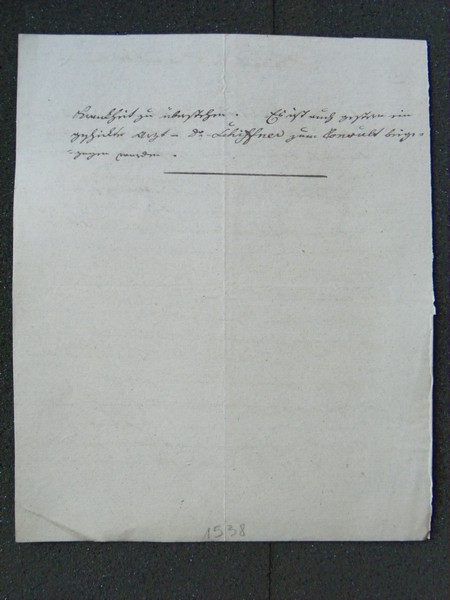 Krankheit zu überstehen. Es ist auch gestern ein
geschickter Arzt – Dr. Schiffner zum Consult beige-
zogen worden.
1538